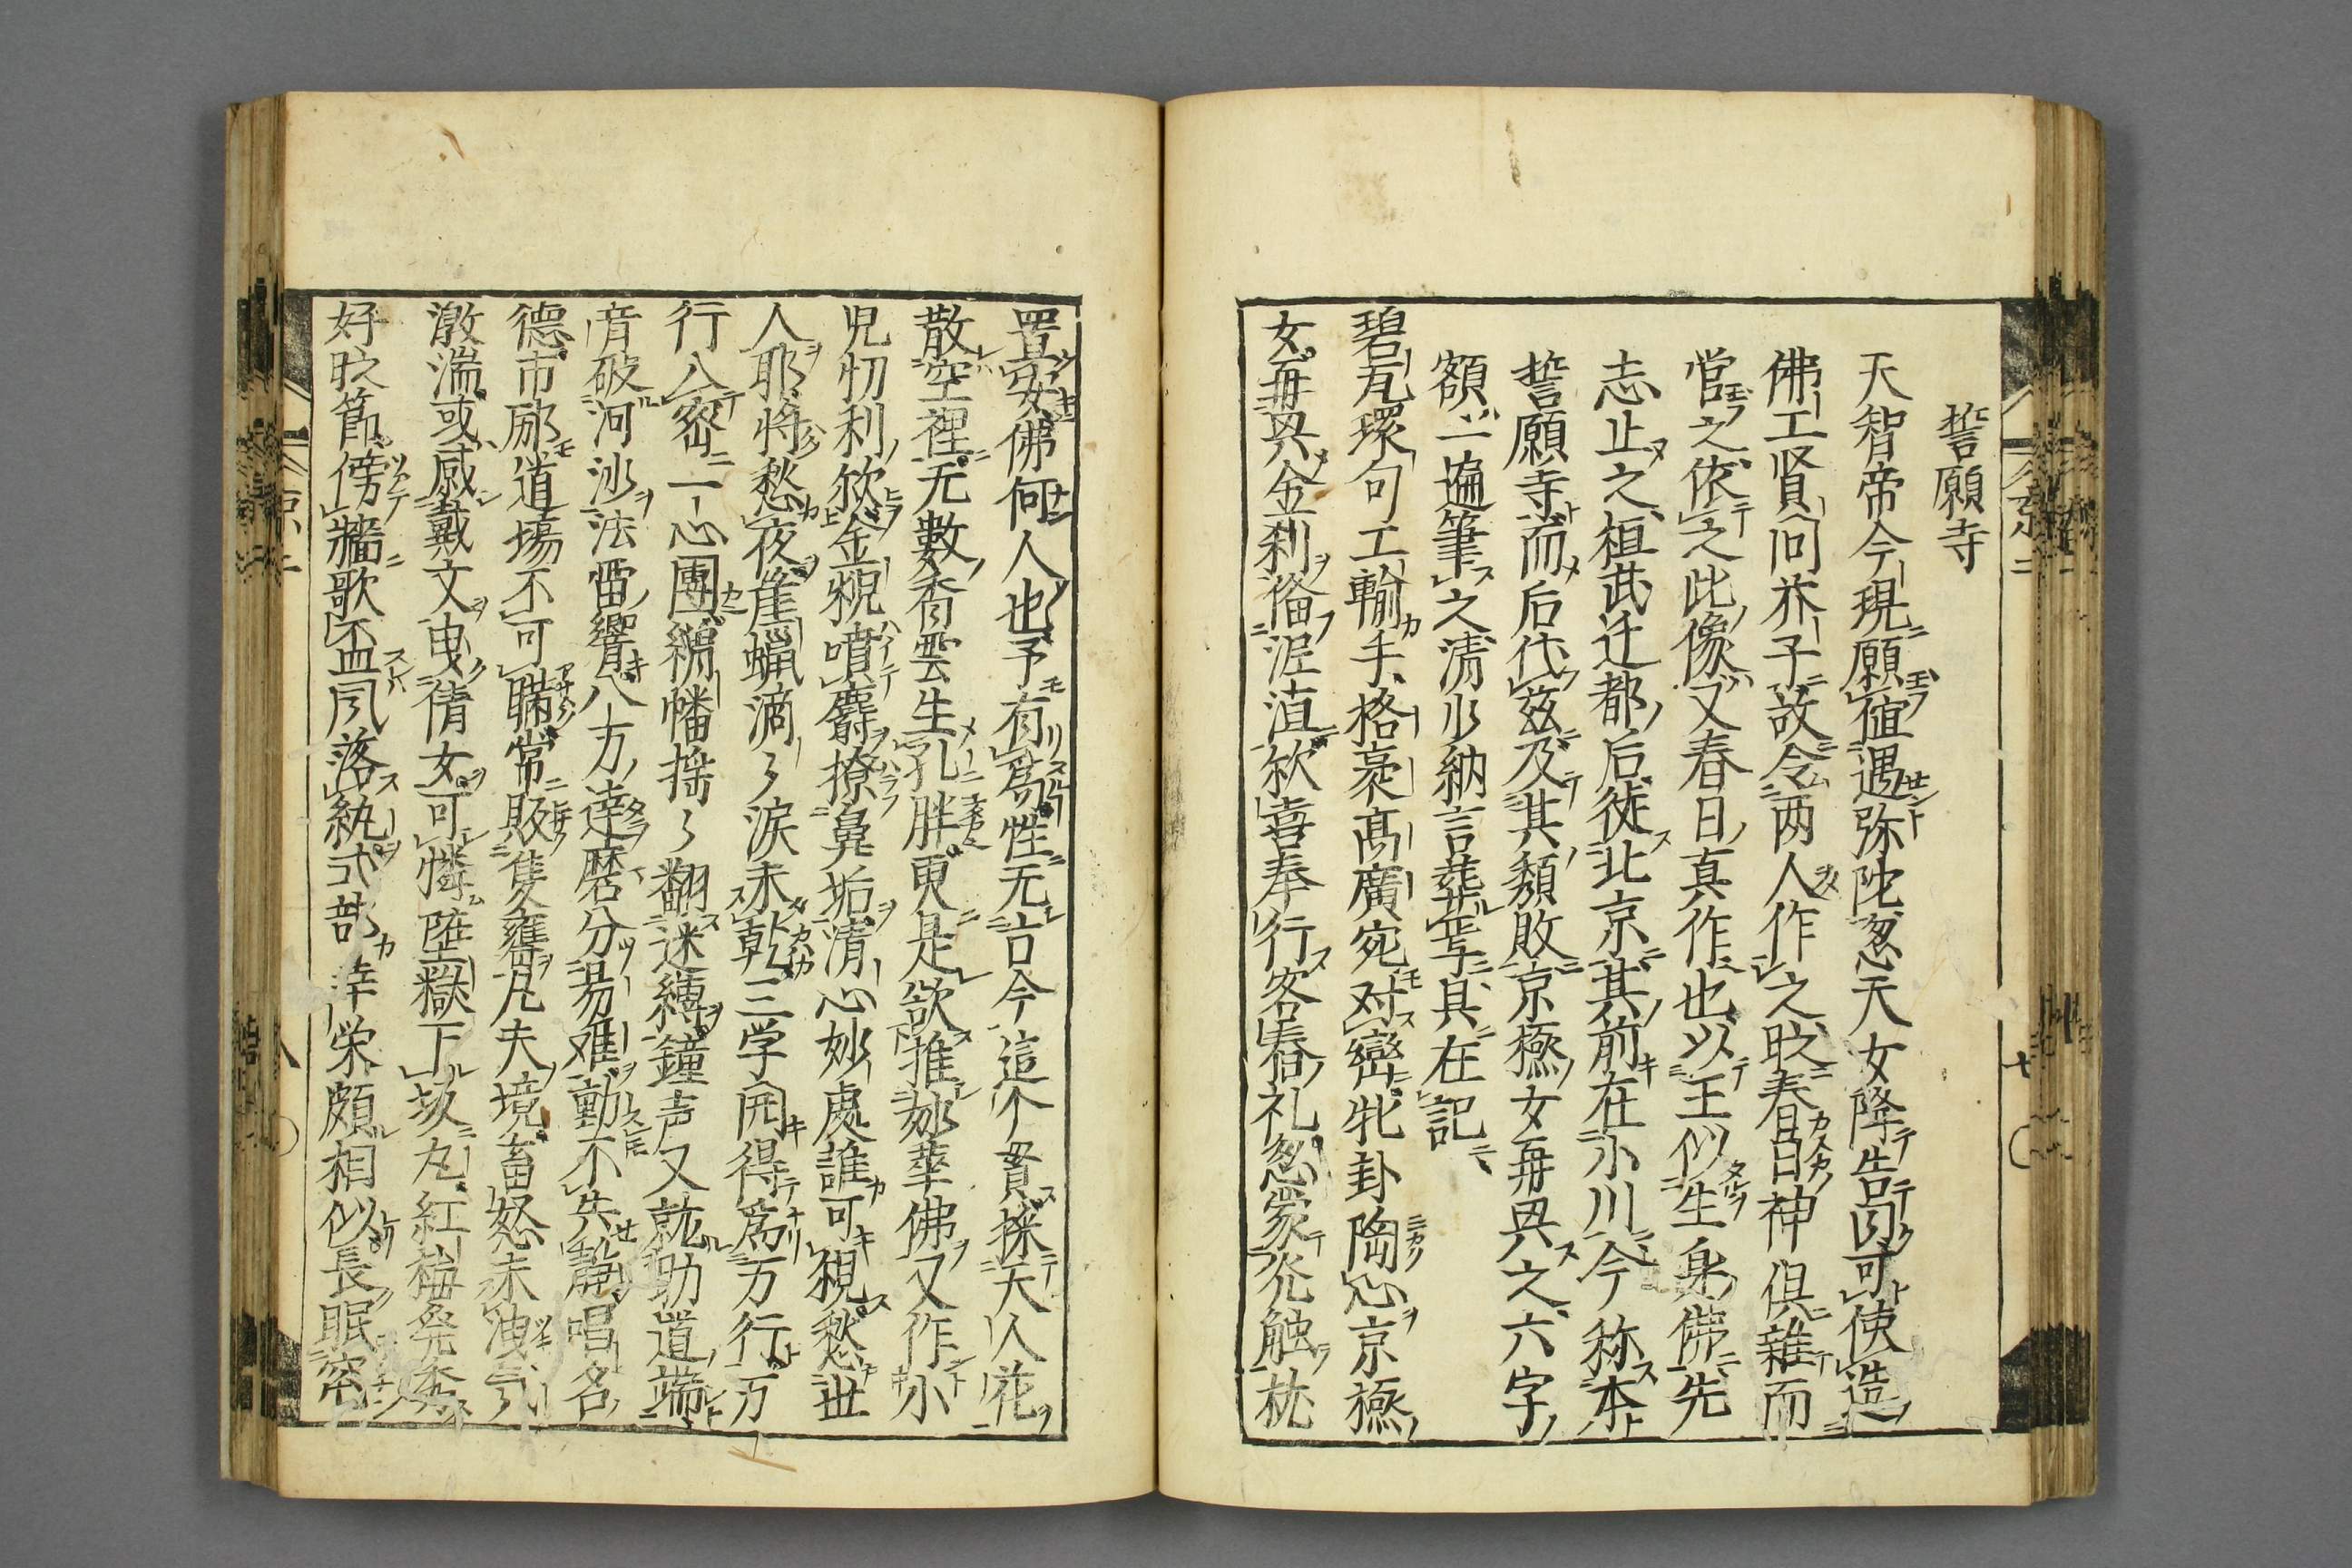 誓願寺
天智帝今現願値遇弥陀忽天女降告曰可使造
佛工賢問芥子故令两人作之眨春日神倶雜而
営之依之此像又春日真作也以王似生身佛先
志止之桓武迁都后徙北京其前在小川今称本
誓願寺而后代茲及其頽敗京極女再興之六字
額一遍筆之清少納言葬焉具在記
碧瓦環句工輸手格豪髙廣宛对巒牝卦陶心京極
女再興金刹俗泥值欽喜奉行客春礼忽蒙発触枕
置安佛何人也予有為性无言今這个賓採天人花
散空裡无數香雲生孔胖更是欲推兹華佛又作小
児忉利欽金猊噴麝撩鼻垢清心妙處誰可視愁世
人耶将愁夜崖蝋滴〻涙未乾三学開得為万行万
行八密一心團縞幡揺〻翻迷縛鐘声又就助道端
音破河沙法雷響八方達磨分湯难動不失静唱名
德市廊道場不可購常販隻甕凡夫境畜怒未洩
激湍或感戴文曳倩女可憐堕獄下坂丸紅梅発
好眨節傍牆歌盃風落紈式部幸栄頗相似長眠